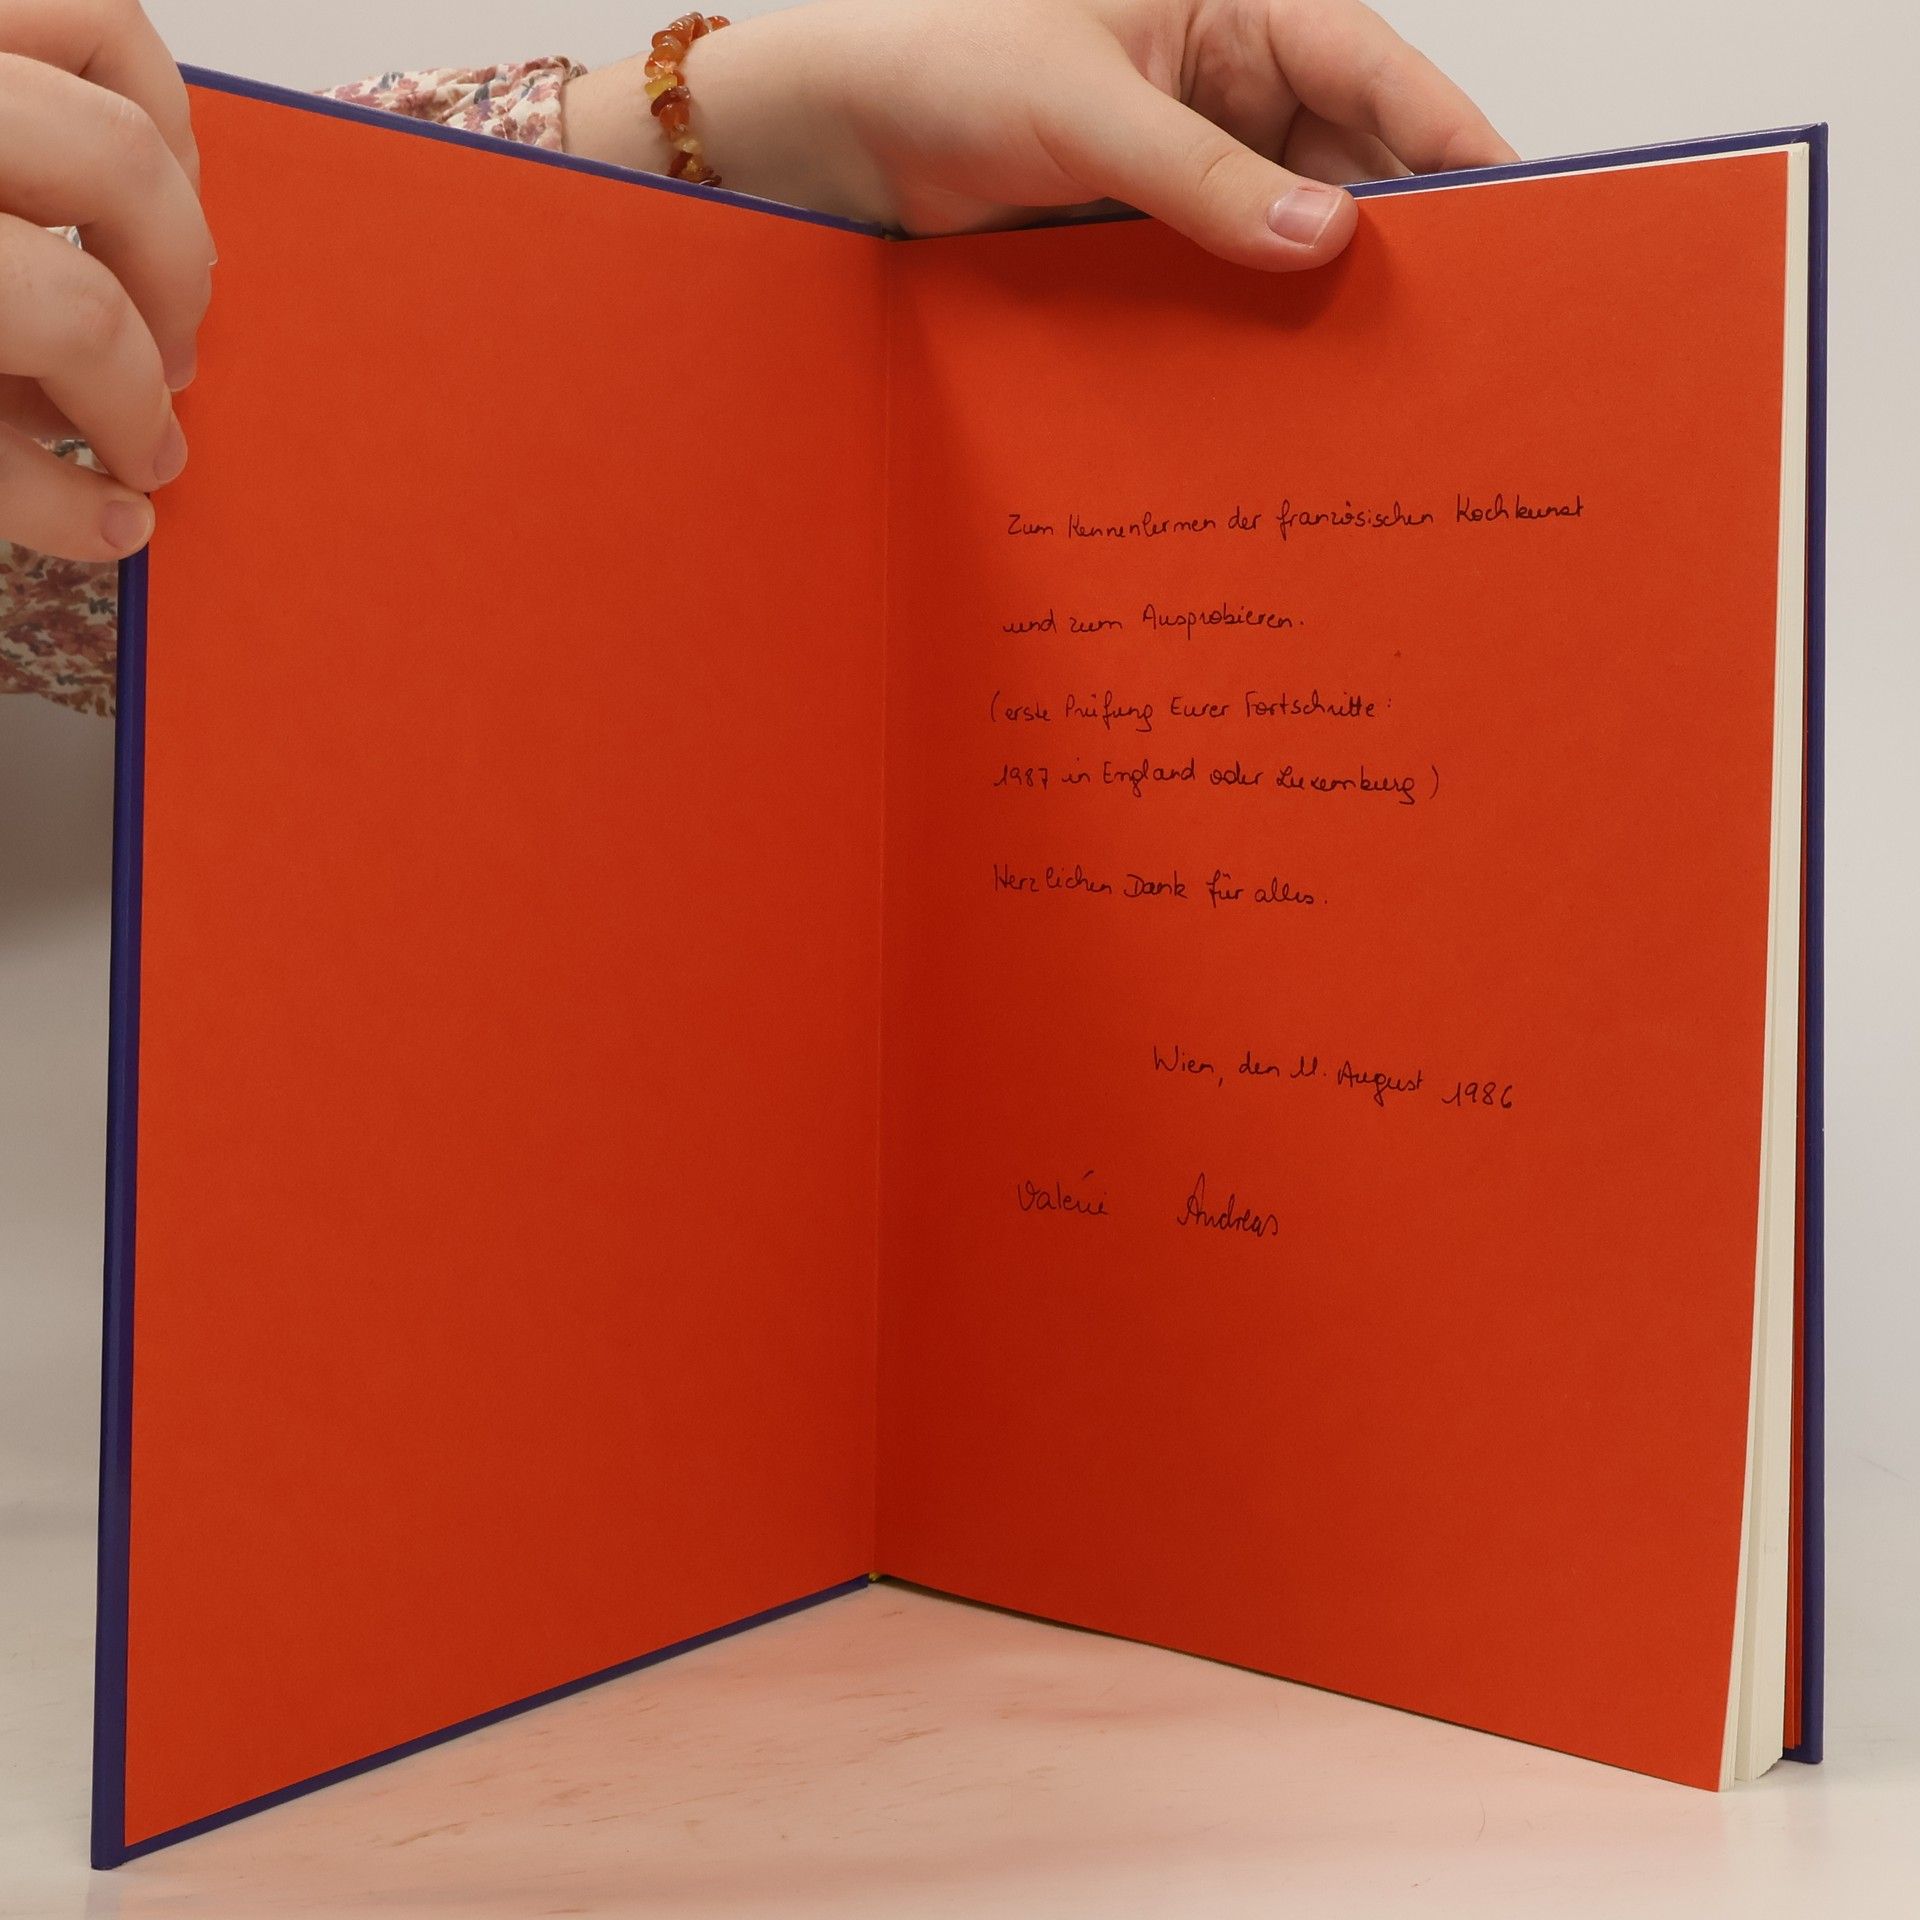 Zum Kennenlernen der französischen Kochkunst
und zum Ausprobieren.
(erste Prüfung Eurer Fortschritte:
1987 in England oder Luxemburg)
Herzlichen Dank für alles.
Wien, den 11. August 1986
Valérie Andreas